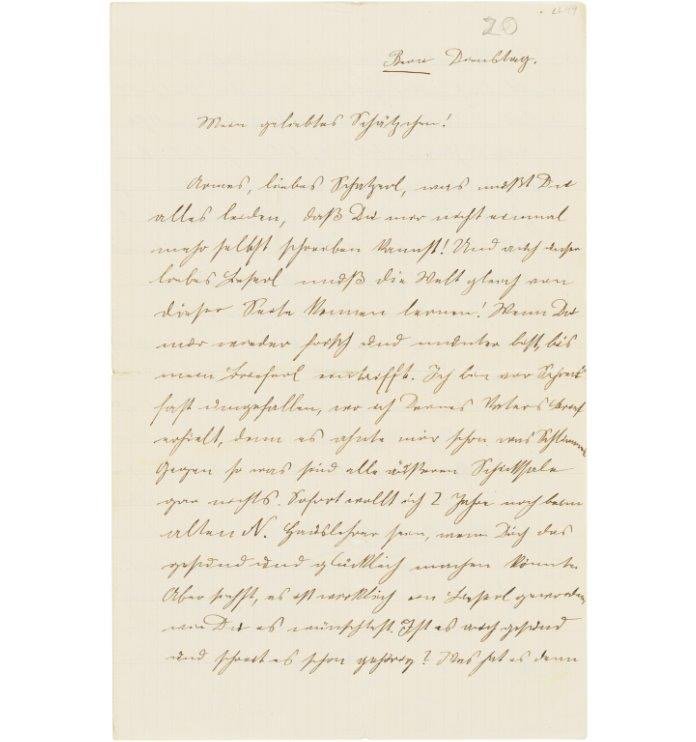 20
Bern Dienstag.
Mein geliebtes Schätzchen!
Armes, liebes Schatzerl, was mußt Du
alles leiden, daß Du mir nicht einmal
mehr selbst schreiben kannst! Und auch unser
liebes Lieserl muß die Welt gleich von
dieser Seite kennen lernen! Wenn Du
nur wieder frisch und munter bist, bis
mein Brieferl eintrifft. Ich bin vor Schreck
fast umgefallen, wo ich Deines Vaters Brief
erhielt, denn es ahnte mir schon was Schlimmes
Gegen so was sind alle äußeren Schicksale
gar nichts. Sofort wollt ich 2 Jahre noch beim
alten N. Hauslehrer sein, wenn Dich das
gesund und glücklich machen könnte.
Aber siehst, es ist wirklich ein Lieserl geworden,
wie Du es wünschtest. Ist es auch gesund
und schreit es schon gehörig? Was hat es denn